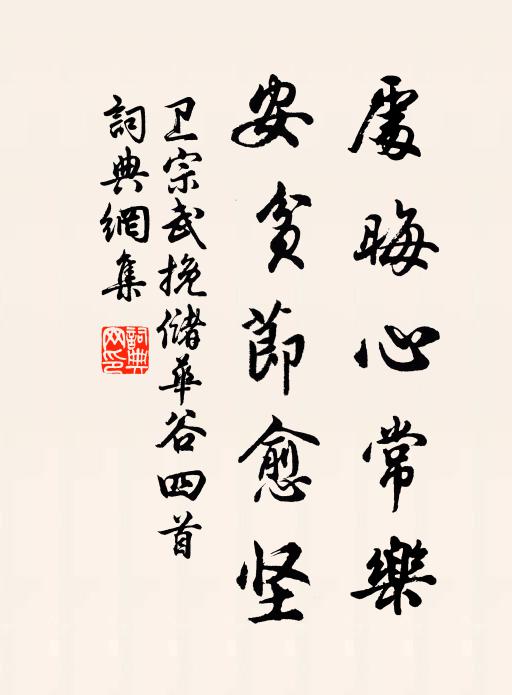 處晦心常樂
安貧節愈坚
卫宗武挽儲華谷四首
詞典網集
詞典網印